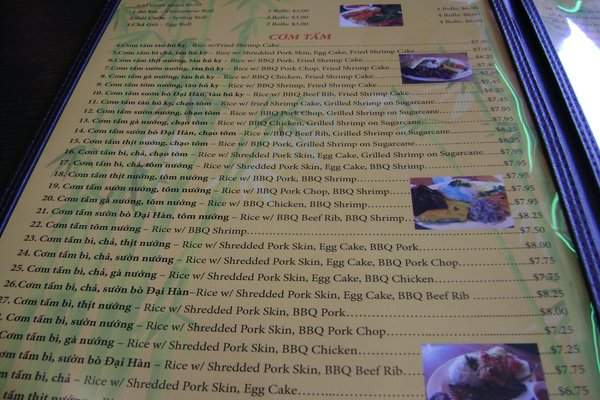 3 Chả Giò - Egg Roll
2 Rolls: $3.00
CƠM TẤM
4. Cơm tấm tàu hủ ky - Rice w/Fried Shrimp Cake
5. Cơm tấm bì, chả, tàu hủ ky - Rice w/ Shredded Pork Skin, Egg Cake, Fried Shrimp Cake
6. Cơm tấm thịt nướng, tàu hủ ky - Rice w/ BBQ Pork, Fried Shrimp Cake
7. Cơm tấm sườn nướng, tàu hủ ky - Rice w/ BBQ Pork Chop, Fried Shrimp Cake
8. Cơm tấm gà nướng, tàu hủ ky - Rice w/ BBQ Chicken, Fried Shrimp Cake
9. Cơm tấm tôm nướng, tàu hủ ky - Rice w/ BBQ Shrimp, Fried Shrimp Cake
10. Cơm tấm sườn bò Đại Hàn, tàu hủ ky - Rice w/ BBQ Beef Rib, Fried Shrimp Cake
11. Cơm tấm tàu hủ ky, chạo tôm - Rice w/ fried Shrimp Cake, Grilled Shrimp on Sugarcane $7.95
12. Cơm tấm sườn nướng, chạo tôm - Rice w/ BBQ Pork Chop, Grilled Shrimp on Sugarcane $7.95
13. Cơm tấm gà nướng, chạo tôm - Rice w/ BBQ Chicken, Grilled Shrimp on Sugarcane $7.95
14. Cơm tấm sườn bò Đại Hàn, chạo tôm - Rice w/BBQ Beef Rib, Grilled Shrimp on Sugarcane $8.25
15. Cơm tấm thịt nướng, chạo tôm - Rice w/ BBQ Pork, Grilled Shrimp on Sugarcane $7.95
16. Cơm tấm bì, chả, chạo tôm - Rice w/ Shredded Pork Skin, Egg Cake, Grilled Shrimp on Sugarcane $7.95
17. Cơm tấm bì, chả, tôm nướng - Rice w/ Shredded Pork Skin, Egg Cake, BBQ Shrimp $7.95
18. Cơm tấm thịt nướng, tôm nướng - Rice w/ BBQ Pork, BBQ Shrimp $7.95
19. Cơm tấm sườn nướng, tôm nướng - Rice w/ BBQ Pork Chop, BBQ Shrimp $7.95
20. Cơm tấm gà nướng, tôm nướng - Rice w/ BBQ Chicken, BBQ Shrimp $7.95
21. Cơm tấm sườn bò Đại Hàn, tôm nướng - Rice w/ BBQ Beef Rib, BBQ Shrimp $8.25
22. Cơm tấm tôm nướng - Rice w/ BBQ Shrimp $7.50
23. Cơm tấm bì, chả, thịt nướng - Rice w/ Shredded Pork Skin, Egg Cake, BBQ Pork $8.00
24. Cơm tấm bì, chả, sườn nướng - Rice w/ Shredded Pork Skin, Egg Cake, BBQ Pork Chop $7.75
25. Cơm tấm bì, chả, gà nướng - Rice w/ Shredded Pork Skin, Egg Cake, BBQ Chicken $7.75
26.Cơm tấm bì, chả, sườn bò Đại Hàn–Rice w/ Shredded Pork Skin, Egg Cake, BBQ Beef Rib $8.25
27. Cơm tấm bì, thịt nướng - Rice w/ Shredded Pork Skin, BBQ Pork $8.00
Cơm tấm bì, sườn nướng - Rice w/ Shredded Pork Skin, BBQ Pork Chop $7.25
Cơm tấm bì, gà nướng - Rice w/ Shredded Pork Skin, BBQ Chicken $7.25
Cơm tấm bì, sườn bò Đại Hàn - Rice w/ Shredded Pork Skin, BBQ Beef Rib $7.75
tấm bì, chả - Rice w/ Shredded Pork Skin, Egg Cake $6.75
tấm thịt nướng
$7.25